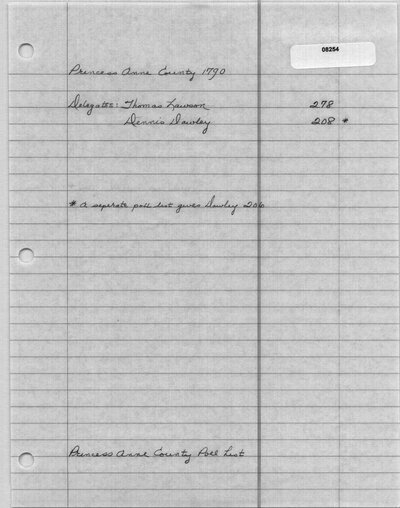 08254
Princess Anne County 1790
Delegates: Thomas Lawson 278
Dennis Dawley 208 *
* A seperate poll list gives Dawley 206
Princess Anne County Poll List